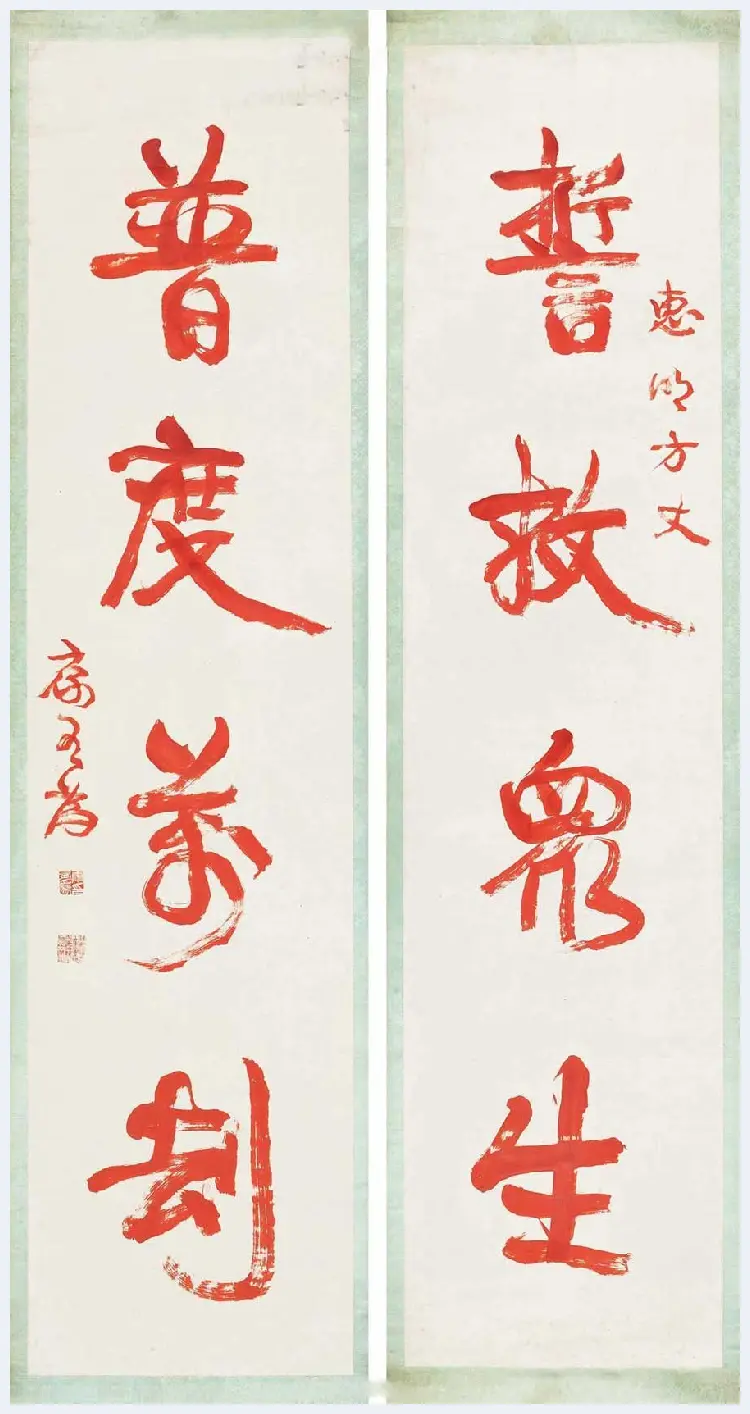 誓救眾生
惠明方丈
普度萬劫
康有為